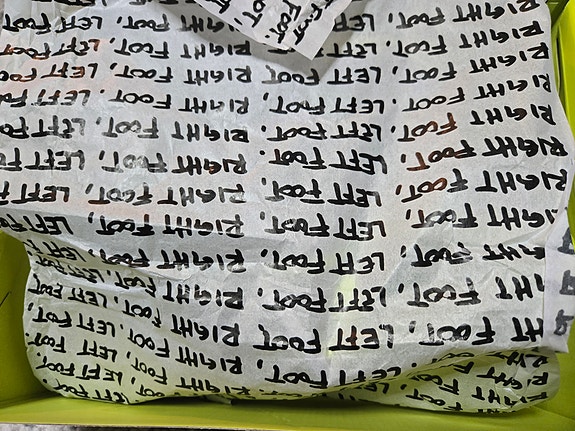 RIGHT FOOT, LEFT FOOT, RIGHT FOOT, LEFT FOOT.
RIGHT FOOT, LEFT FOOT, RIGHT FOOT, LEFT FOOT
FOOT, LEFT FOOT, RIGHT FOOT, LEFT FOOT,
FOOT, LEFT FOOT, RIGHT FOOT, LEFT FOOT,
FOOT, LEFT FOOT, RIGHT FOOT, LEFT FOOT,
RIGHT FOOT, LEFT FOOT, RIGHT FOOT, LEFT
RIGHT FOOT, LEFT FOOT, RIGHT FOOT, LEFT
RIGHT FOOT, LEFT FOOT, RIGHT FOOT, LEFT
RIGHT FOOT, LEFT FOOT. RIGHT FOOT, LEFT
RIGHT FOOT, LEFT FOOT, RIGHT FOOT, LEFT
RIGHT FOOT, LEFT FOOT, RIGHT FOOT, LEFT
RIGHT FOOT, LEFT FOOT, RIGHT FOOT, LEFT FOOT
RIGHT FOOT, LEFT FOOT, RIGHT FOOT, LEFT
RIGHT FOOT, LEFT FOOT, RIGHT FOOT